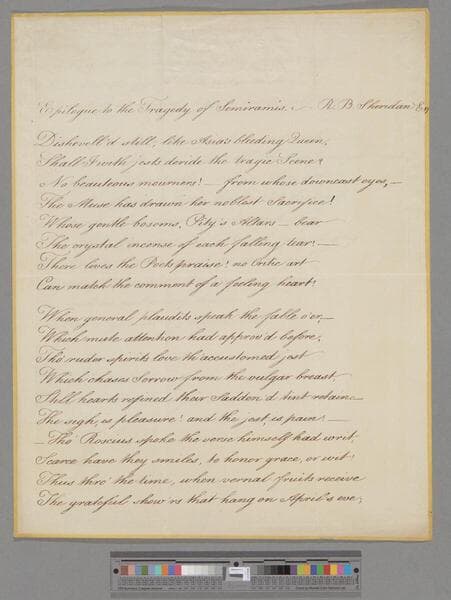 Epilogue to the Tragedy of Semiramis. R. B. Sheridan Esq
Dishevell'd still, like Asia's bleeding Queen,
Shall I with jests deride the tragic Scene?
No beauteous mourners! — from whose downcast eyes, —
The Muse has drawn her noblest Sacrifice!
Whose gentle bosoms, Pity's Altars — bear
The crystal incense of each falling tear! —
There lives the Poets praise! no Critic art
Can match the comment of a feeling heart!
When general plaudits speak the fable o'er, —
Which mute attention had approv'd before,
Tho' ruder spirits love th' accustomed jest
Which chases Sorrow from the vulgar breast,
Still hearts refined their Sadden'd tint retain —
The sigh, is pleasure! and the jest, is pain! —
— Tho' Roscius spoke the verse himself had writ,
Scarce have they smiles, to honor grace, or wit!
Thus thro' the time, when vernal fruits receive
The grateful show'rs that hang on April's eve;